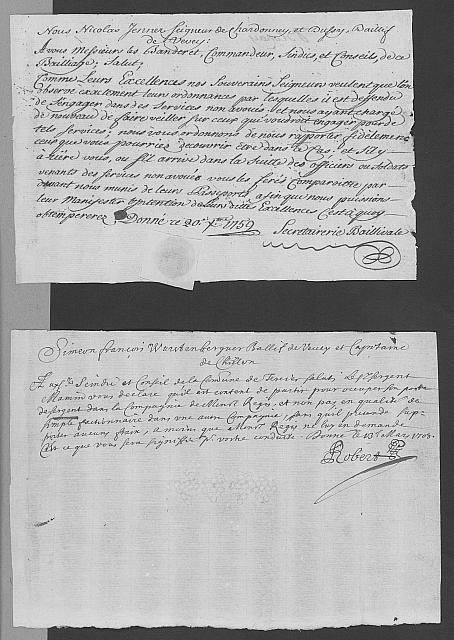 Nous Nicolas Jenner Seigneur de Chardonney, et Bussy, Baillif
de Vevey:
A vous Messieurs les Banderet, Commandeur, Sindics, et Conseils, de ce
Bailliage, Salut,
Comme Leurs Excellences nos Souverains Seigneurs veulent que l'on
observe exactement leurs ordonnances par lesquelles il est deffendu
de s'engager dans des Services non avoués, et nous ayant chargé
de nouveau de faire veiller sur ceux qui voudroit engager pour de
tels Services; nous vous ordonnons de nous rapporter fidelement
ceux que vous pourriez decouvrir être dans le Cas, et s'il y
a rière vous, ou s'il arrive dans la Suite des officiers ou Soldats
venants des Services non avoués vous les ferés Comparoitre par
devant nous munis de leurs Passeports afin que nous puissions
leur Manifester l'intention de Leurs dittes Excellences C'est à quoy
obtempererez Donné ce 20e 1759
Secretairerie Baillivale
Simeon françois Wurtenberguer Ballif de Vevey et Capitaine
de Chillon
Sindic et Conseil de la Comune de salut, Le Sergent
Mamin vous declare qu'il est content de partir pour occuper son poste
de sergent dans la Compagnie de Monsr Regis et non pas en qualité de
simple factionnaire dans une autre Compagnie, sans qu'il pretende sup-
porter aucuns fraix, a moins que Monsr Regis ne luy en demande
C'est ce que vous sera signifié pr vostre conduite Donné le 13e Mars 1703.
Robert